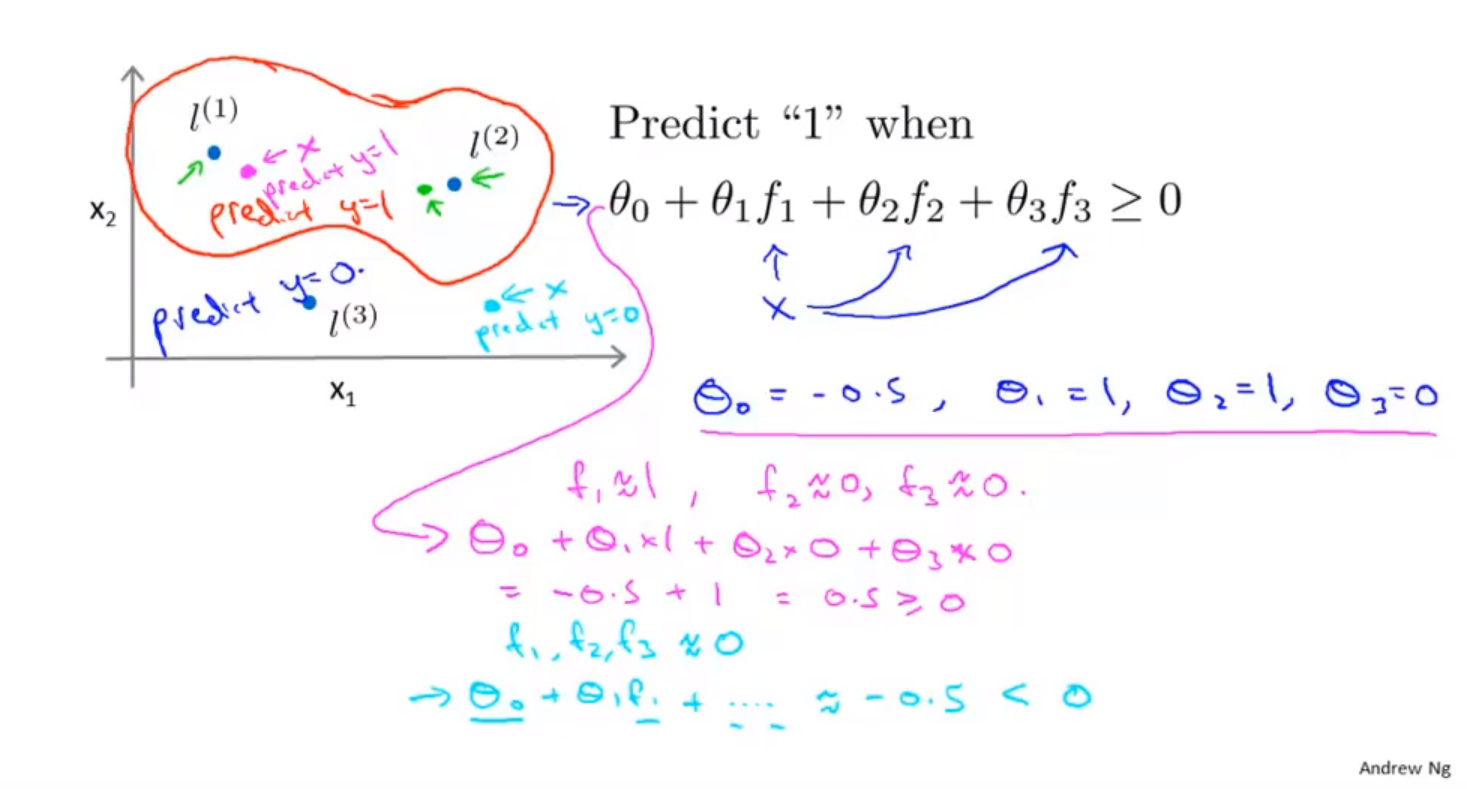 l^{(1)}
← x
predict y=1
l^{(2)}
predict y=1
x_2
predict y=0.
l^{(3)}
← x
predict y=0
x_1
Predict “1” when
→ θ_0 + θ_1 f_1 + θ_2 f_2 + θ_3 f_3 ≥ 0
x
θ_0 = -0.5, θ_1 = 1, θ_2 = 1, θ_3 = 0
f_1 ≈ 1, f_2 ≈ 0, f_3 ≈ 0.
→ θ_0 + θ_1 × 1 + θ_2 × 0 + θ_3 × 0
= -0.5 + 1 = 0.5 ≥ 0
f_1, f_2, f_3 ≈ 0
→ θ_0 + θ_1 f_1 + .... ≈ -0.5 < 0
Andrew Ng